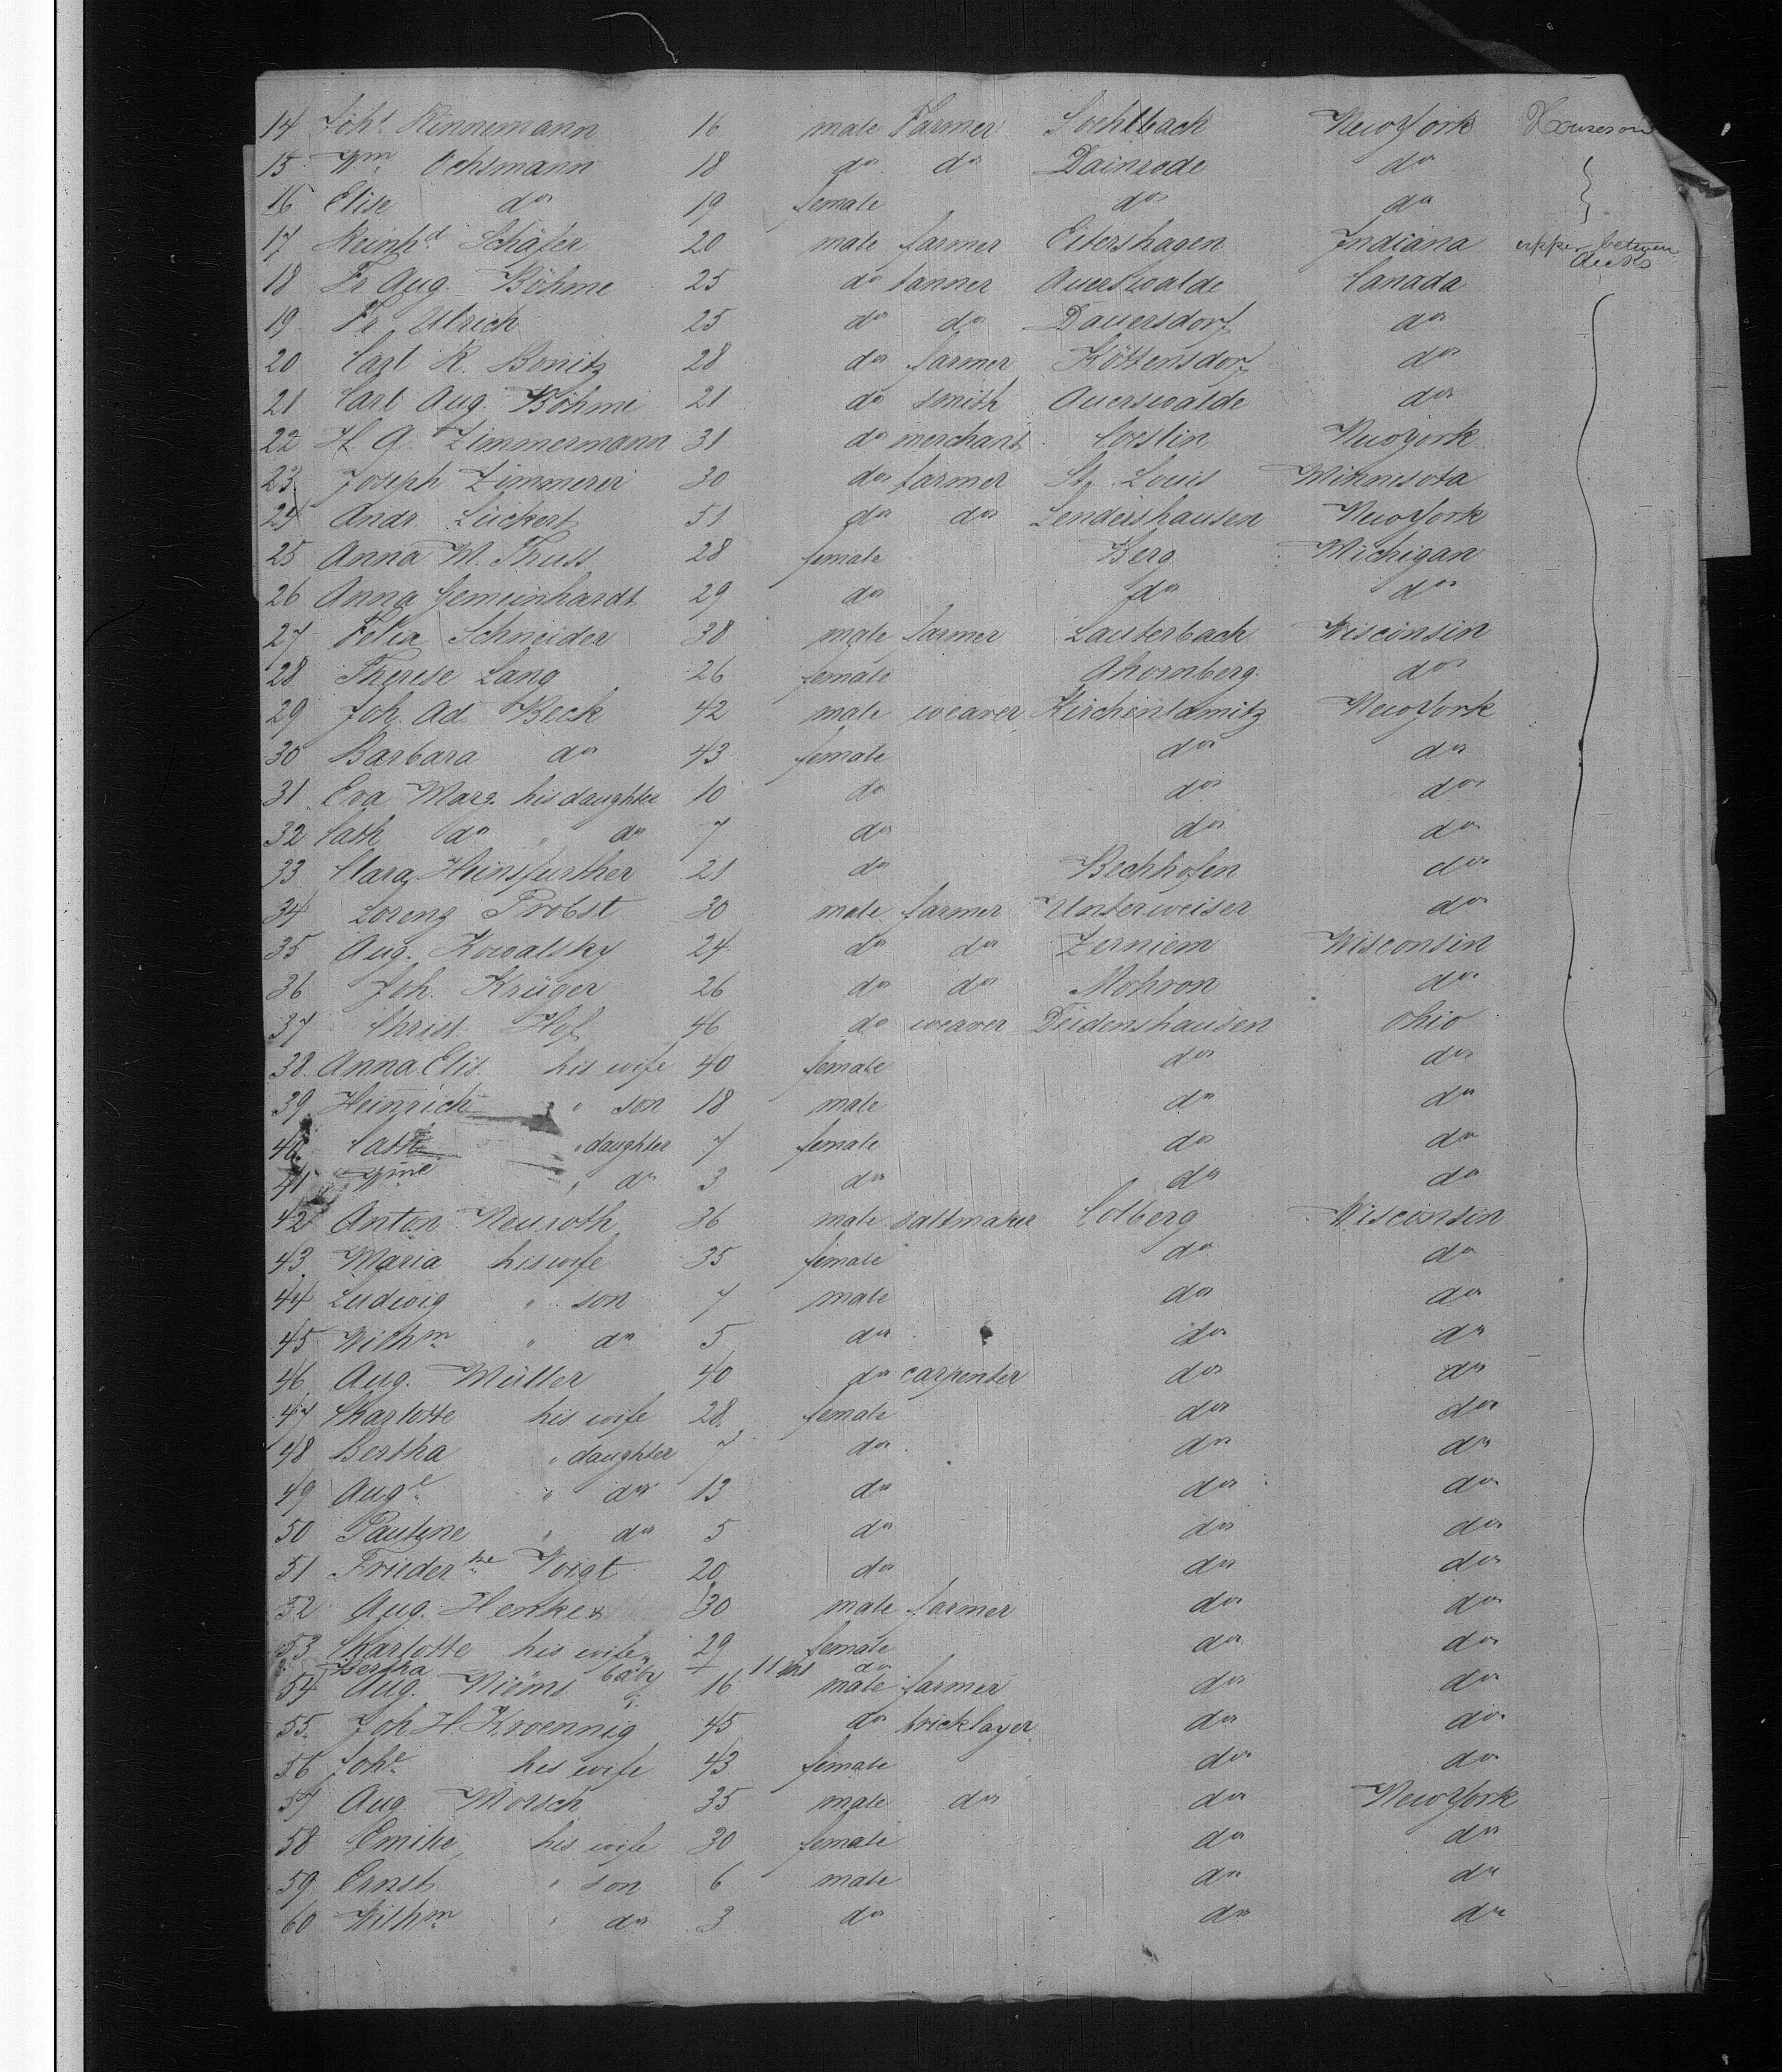 14 Joh.s Rinnemann 16 male Farmer Sohlbach New York House on
15 Wm Ochsmann 18 do do Dainrode do
16 Elise do 19 female do do
17 Reinhd Schäfer 20 male farmer Eitershagen Indiana upper between decks
18 Fr Aug. Böhme 25 do tanner Auerswalde Canada
19 Fr. Ulrich 25 do do Dauersdorf do
20 Carl R. Bonitz 28 do farmer Köttensdorf do
21 Carl Aug. Böhme 21 do smith Auerswalde do
22 H. G. Zimmermann 31 do merchant Coeslin New York
23 Joseph Zimmerer 30 do farmer St. Louis Minnesota
24 Andr. Lückert 51 do do Lendershausen New York
25 Anna M. Thuss 28 female Berg Michigan
26 Anna Gemeinhardt 29 do do do
27 Felix Schneider 38 male farmer Lauterbach Wisconsin
28 Therese Lang 26 female Ahornberg do
29 Joh. Ad Beck 42 male weaver Kirchenlamitz New York
30 Barbara do 43 female do do
31 Eva Marg. his daughter 10 do do do
32 Cath do " do 7 do do do
33 Clara Heinsfurther 21 do Bechhofen do
34 Lorenz Probst 30 male farmer Unterweiser do
35 Aug. Kowalsky 24 do do Zerniem Wisconsin
36 Joh. Krüger 26 do do Mohron do
37 Christ. Hof 46 do weaver Deidenshausen Ohio
38 Anna Elis. his wife 40 female do do
39 Heinrich " son 18 male do do
40 Cath " daughter 7 female do do
41 Wme " do 3 do do do
42 Anton Neuroth 36 male saltmaker Colberg Wisconsin
43 Maria his wife 35 female do do
44 Ludwig " son 7 male do do
45 Wilhm " do 5 do do do
46 Aug. Müller 40 do carpenter do do
47 Charlotte his wife 28 female do do
48 Bertha " daughter 7 do do do
49 Auge " do 13 do do do
50 Pauline " do 5 do do do
51 Friederke Voigt 20 do do do
52 Aug. Henke 30 male farmer do do
53 Charlotte his wife 29 female do do
Bertha baby 11 do
54 Aug. Wiems 16 male farmer do do
55 Joh H. Kroennig 45 do bricklayer do do
56 Johe his wife 43 female do do
57 Aug. Morsch 35 male do do New York
58 Emilie his wife 30 female do do
59 Ernst " son 6 male do do
60 Wilhm " do 3 do do do